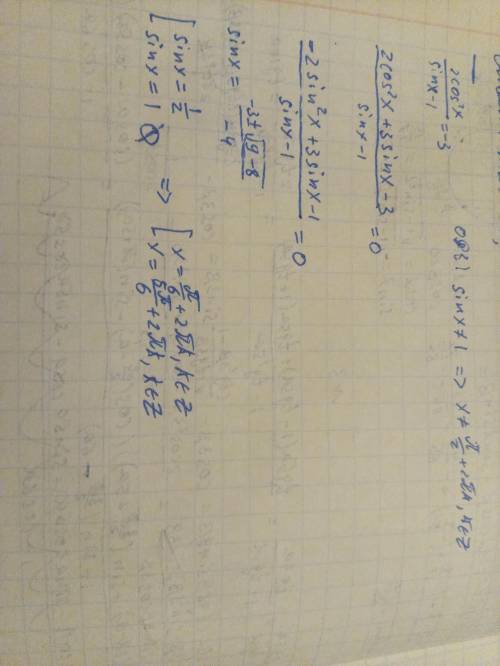 2cos²x / sinx-1 = -3
ОДЗ) sinx≠1 => x≠ π/2 + 2πk, k∈Z
2cos²x + 3sinx - 3 / sinx-1 = 0
-2sin²x + 3sinx - 1 / sinx-1 = 0
sinx = -3±√9-8 / -4
[ sinx = 1/2
sinx = 1 Ø
=> [ x = π/6 + 2πk, k∈Z
x = 5π/6 + 2πk, k∈Z